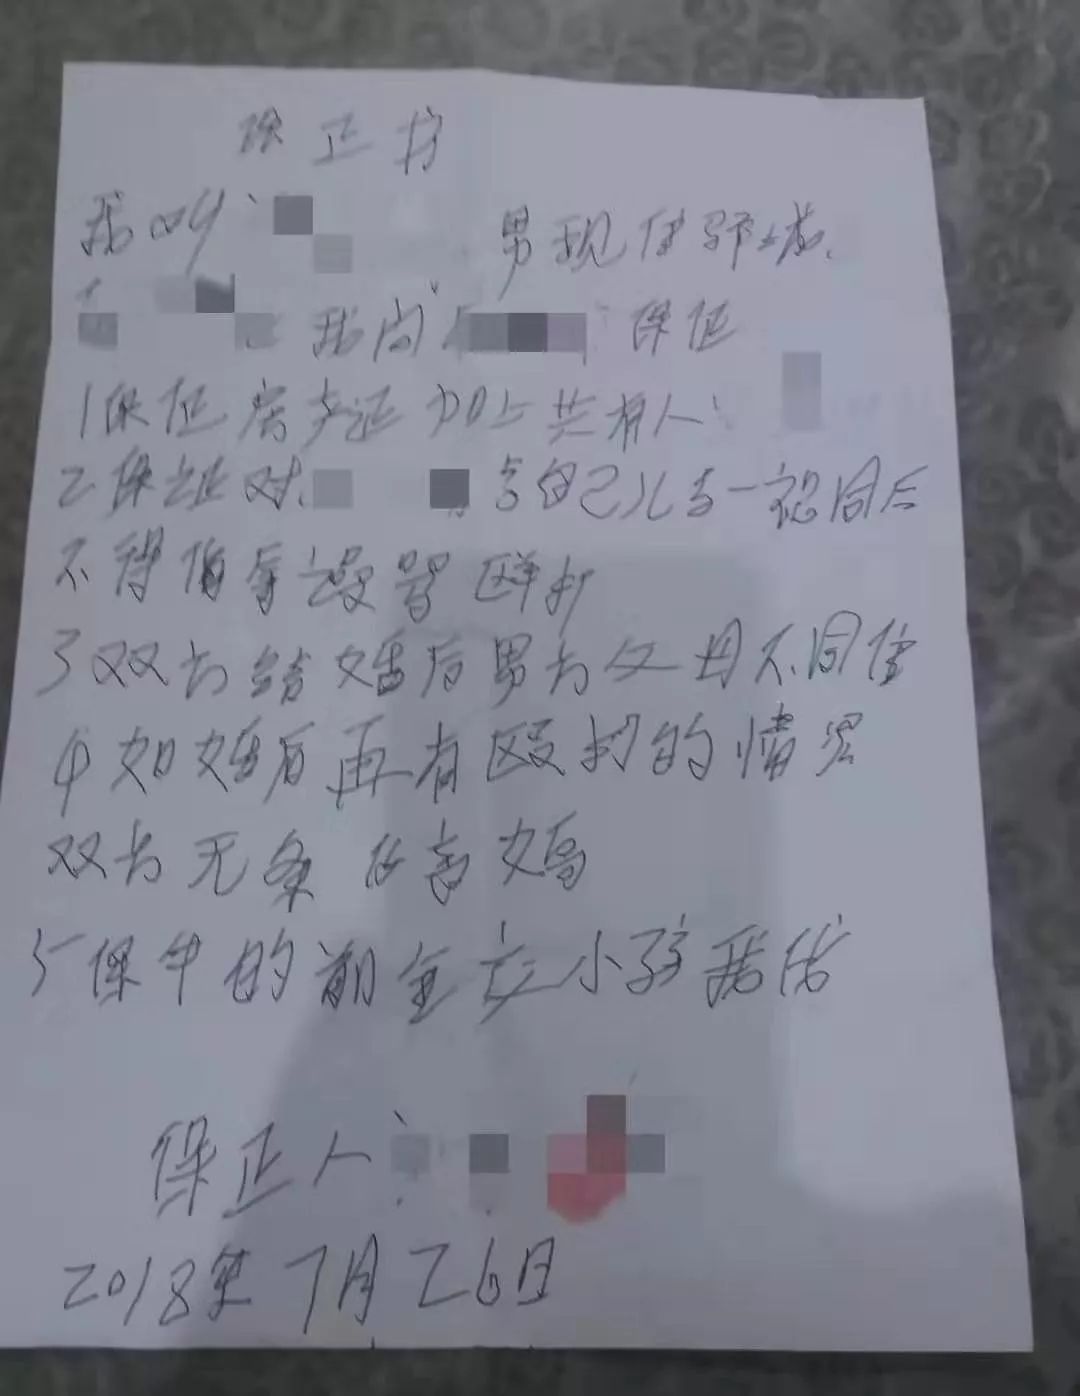 保正书
我叫: 男现住鄂城.
我向 保证
1保证房产证加上共有人:
2保证对. 与自己儿女一视同仁
不得侮辱谩骂殴打
3双方结婚后男方父母不同住
4如婚后再有殴打的情况
双方无条件离婚
5保牛的 小孩我
保正人:
2018年7月26日